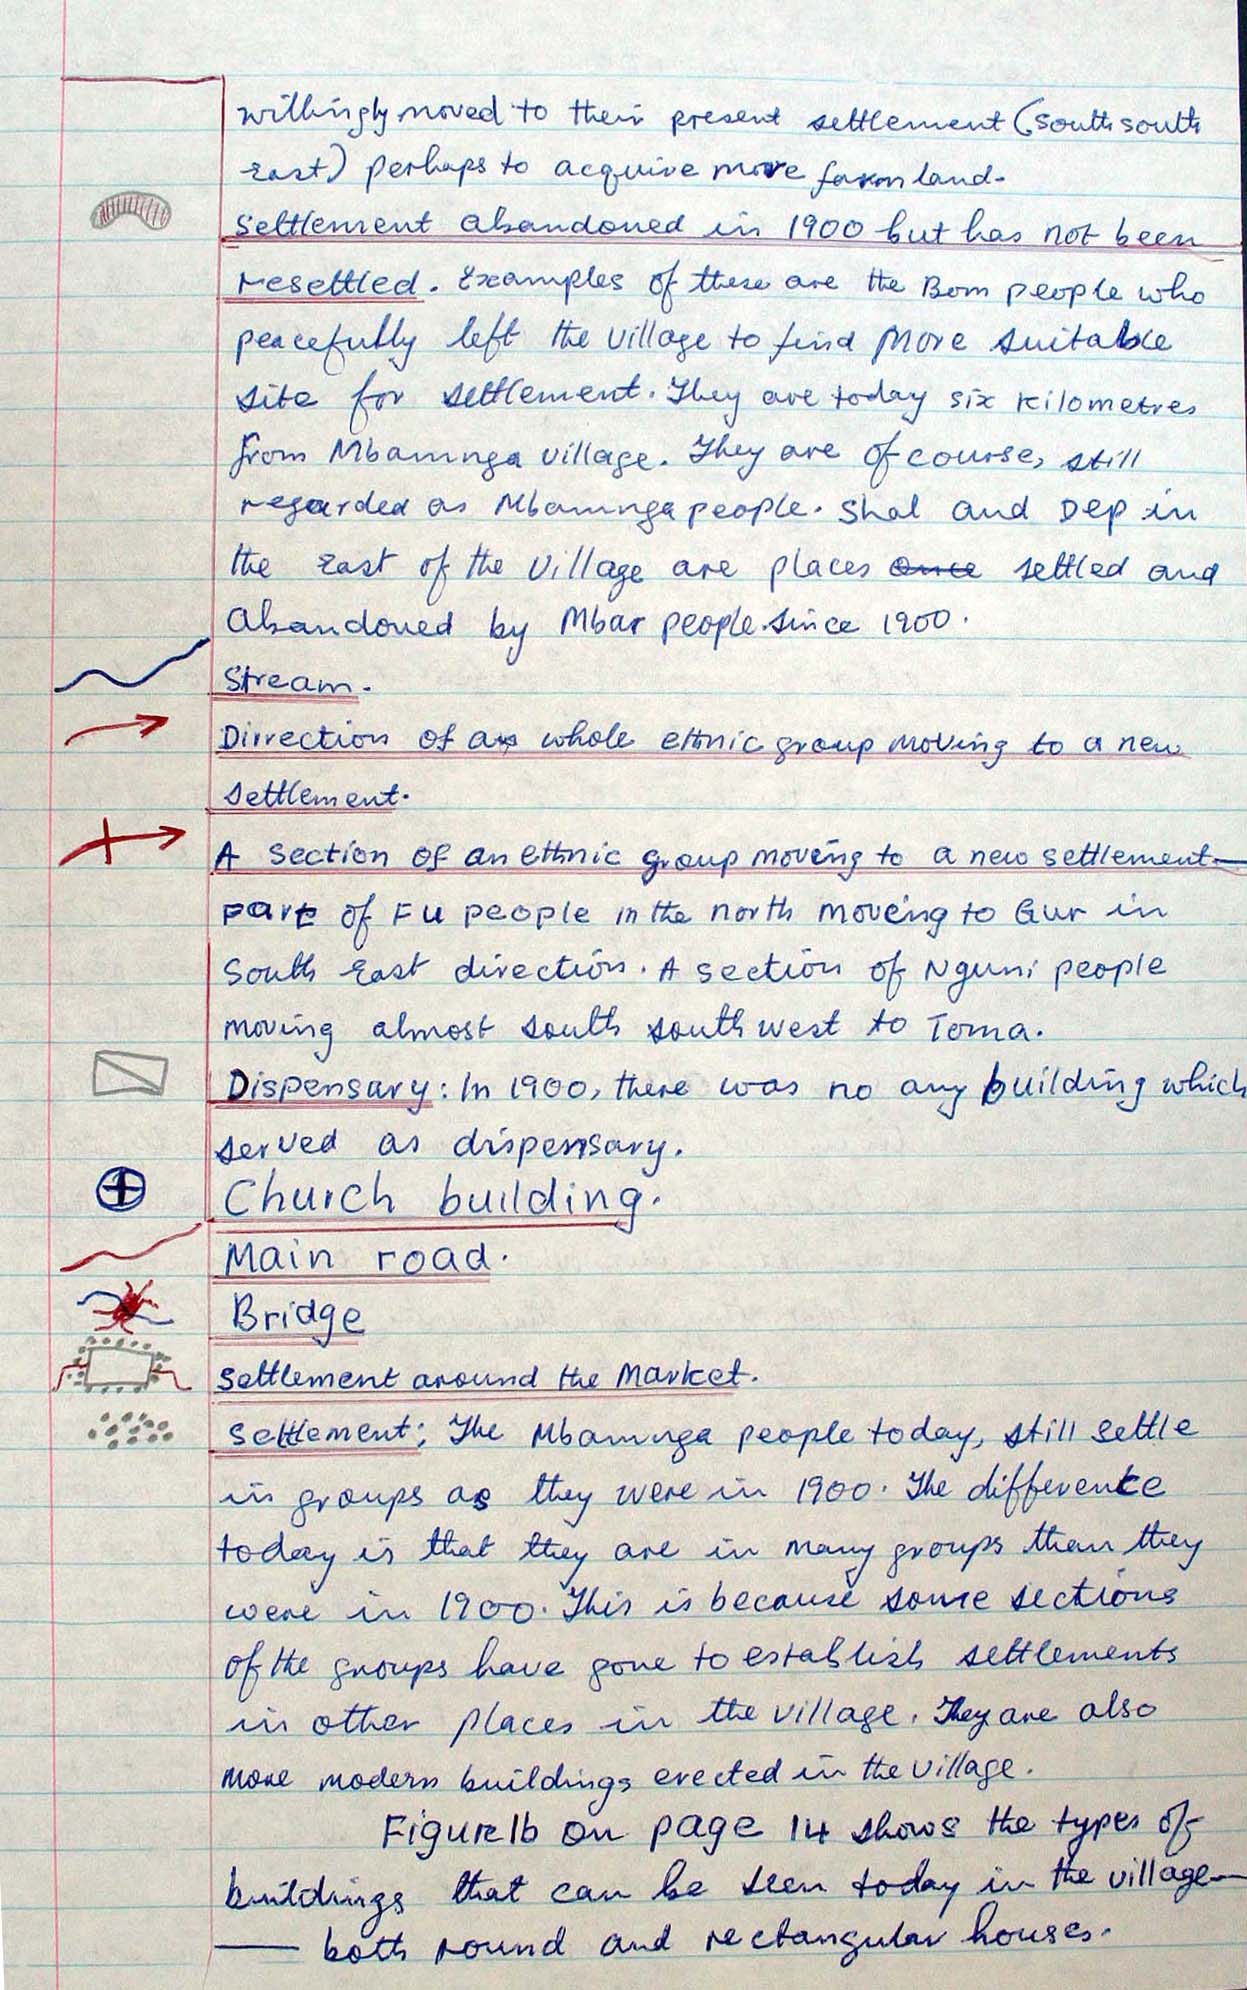 willingly moved to their present settlement (South south
East) perhaps to acquire more farm land.
Settlement abandoned in 1900 but has not been
resettled. Examples of these are the Bom people who
peacefully left the village to find more suitable
site for settlement. They are today six kilometres
from Mbamnga village. They are of course, still
regarded as Mbamnga people. Shal and Dep in
the East of the village are places once settled and
abandoned by Mbar people since 1900.
Stream.
Dirrection of a whole ethnic group moving to a new
settlement.
A section of an ethnic group moving to a new settlement—
part of Fu people in the north moving to Gur in
South East direction. A section of Nguni people
moving almost south south west to Toma.
Dispensary: In 1900, there was no any building which
served as dispensary.
Church building.
Main road.
Bridge
Settlement around the Market.
Settlement; The Mbamnga people today, still settle
in groups as they were in 1900. The difference
today is that they are in many groups than they
were in 1900. This is because some sections
of the groups have gone to establish settlements
in other places in the village. They are also
more modern buildings erected in the village.
Figure 1b on page 14 shows the types of
buildings that can be seen today in the village—
— both round and rectangular houses.